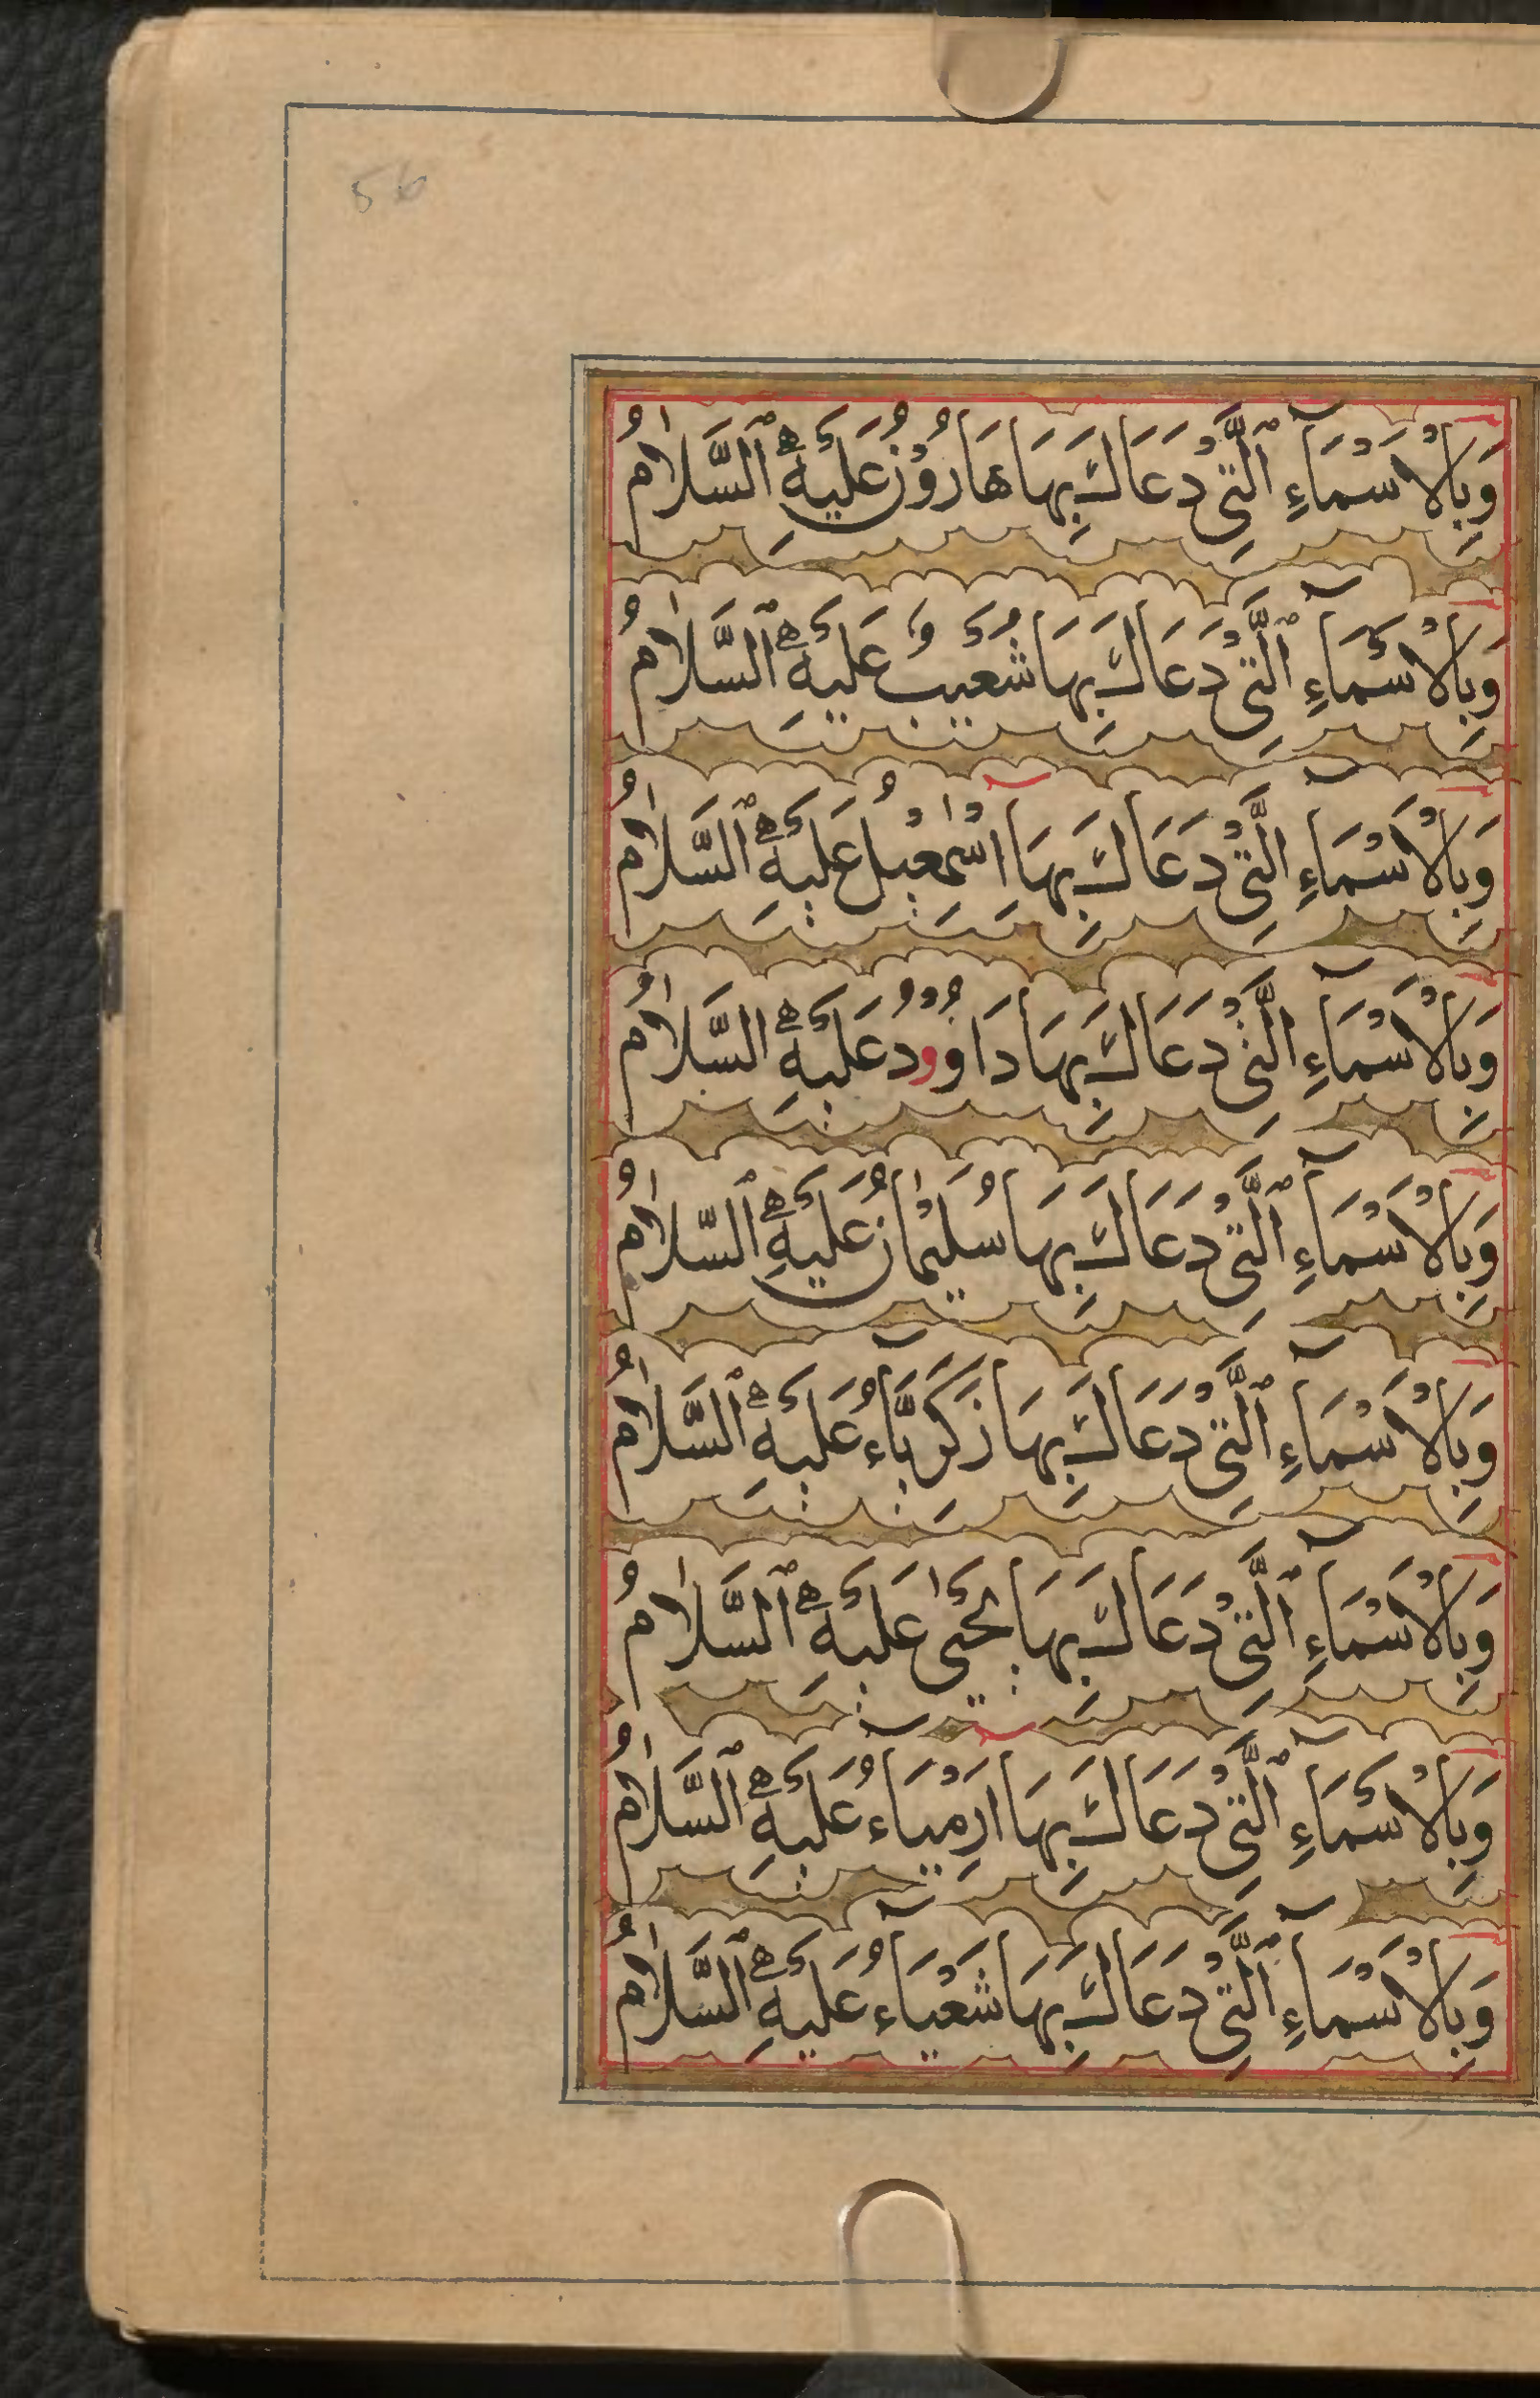 56
وَبِالْاَسْمَآءِ ٱلَّتِىْ دَعَاكَ بِهَا هَارُوْنُ عَلَيْهِ ٱلسَّلَامُ
وَبِالْاَسْمَآءِ ٱلَّتِىْ دَعَاكَ بِهَا شُعَيْبُ عَلَيْهِ ٱلسَّلَامُ
وَبِالْاَسْمَآءِ الَّتِىْ دَعَاكَ بِهَا اِسْمٰعِيْلُ عَلَيْهِ ٱلسَّلَامُ
وَبِالْاَسْمَآءِ الَّتِىْ دَعَاكَ بِهَا دَاوُوْدُ عَلَيْهِ السَّلَامُ
وَبِالْاَسْمَآءِ ٱلَّتِىْ دَعَاكَ بِهَا سُلَيْمٰانُ عَلَيْهِ ٱلسَّلَامُ
وَبِالْاَسْمَآءِ ٱلَّتِىْ دَعَاكَ بِهَا زَكَرِيَّآءُ عَلَيْهِ ٱلسَّلَامُ
وَبِالْاَسْمَآءِ ٱلَّتِىْ دَعَاكَ بِهَا يَحْيٰى عَلَيْهِ ٱلسَّلَامُ
وَبِالْاَسْمَآءِ ٱلَّتِىْ دَعَاكَ بِهَا اَرْمِيَآءُ عَلَيْهِ ٱلسَّلَامُ
وَبِالْاَسْمَآءِ ٱلَّتِىْ دَعَاكَ بِهَا شَعْيَآءُ عَلَيْهِ ٱلسَّلَامُ